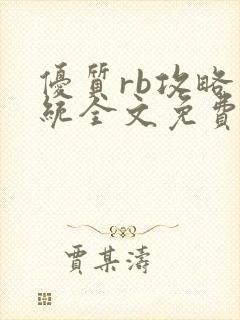 優質rb攻略
統全文免費
賈某濤